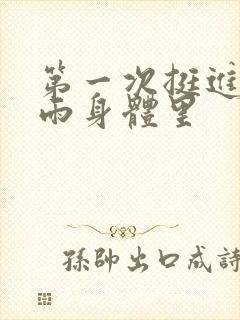 第一次挺進
雨身體里
孫帥出口成詩